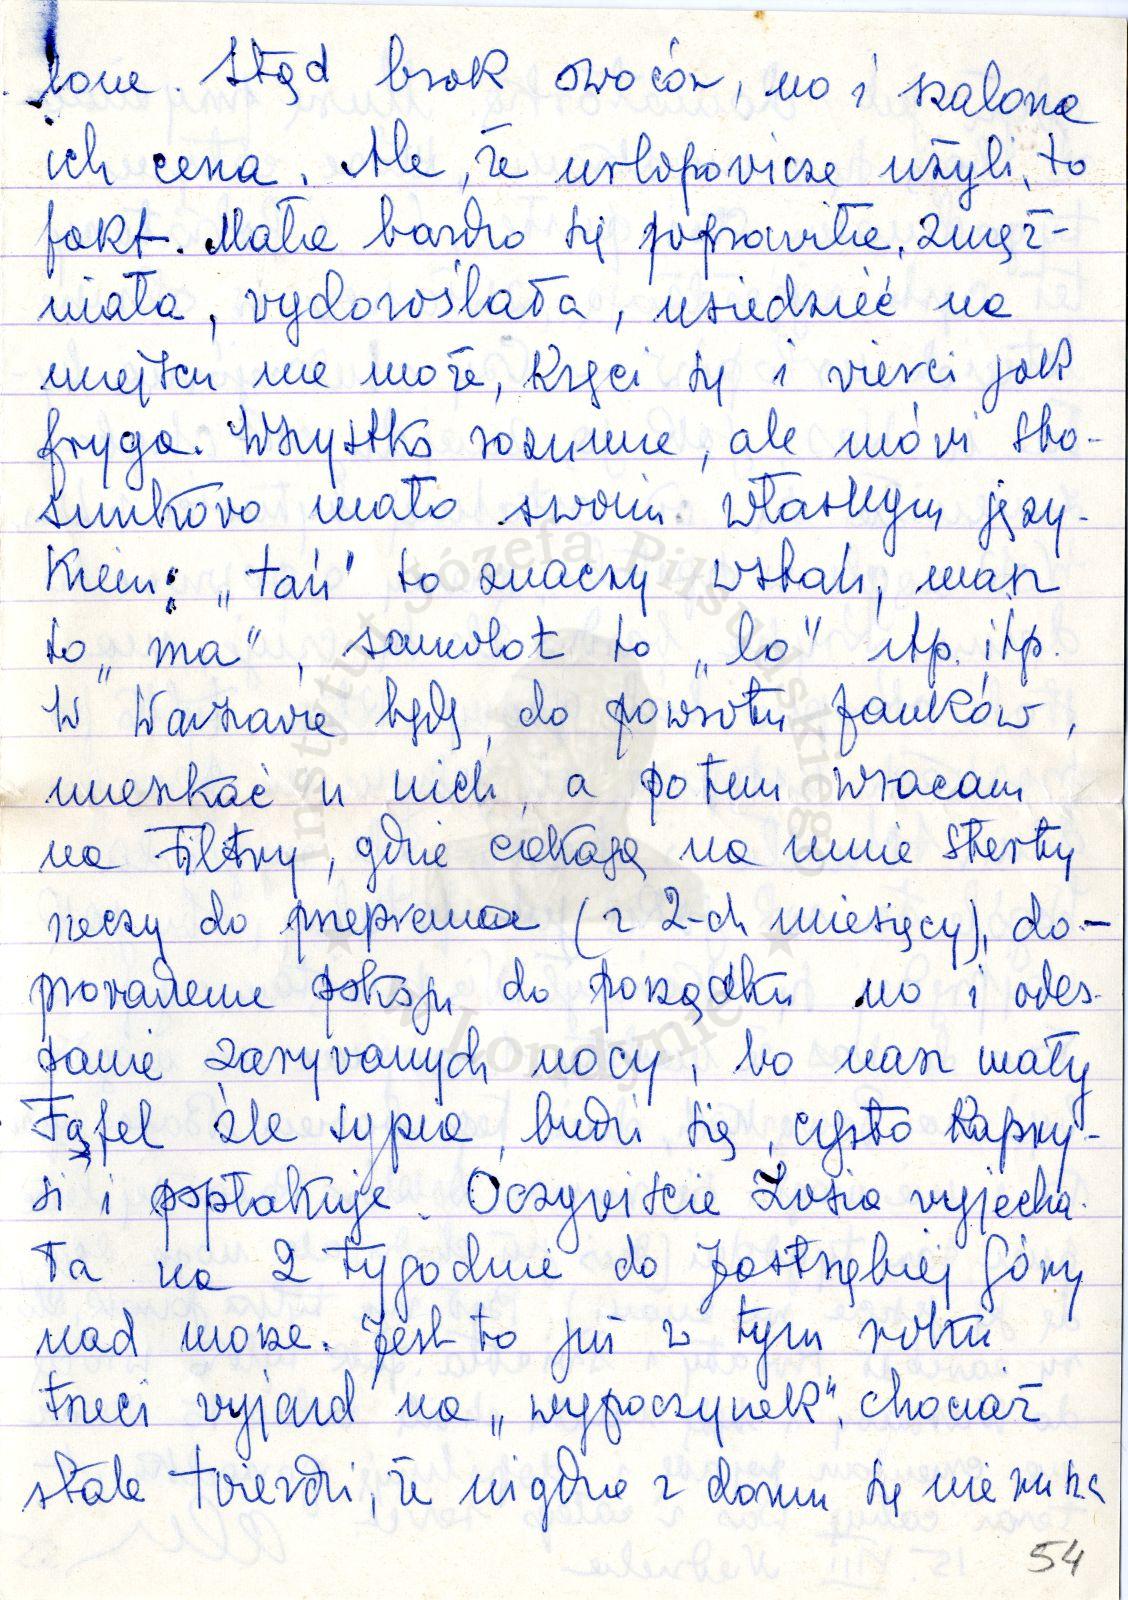 lone. Stąd brak owoców, no i szalona
ich cena. Ale, że urlopowicze użyli, to
fakt. Mała bardzo się poprawiła, zmęż-
niała, wydoroślała, usiedzieć na
miejscu nie może, kręci się i wierci jak
fryga. Wszystko rozumie, ale mówi sto-
sunkowo mało swoim własnym języ-
kiem: „tań" to znaczy wstań, masz
to „ma", samolot to „lo" itp. itp.
W Warszawie będę, do powrotu Janków,
mieszkać u nich, a potem wracam
na Filtry, gdzie czekają na mnie sterty
rzeczy do przeprania (z 2-ch miesięcy), do-
prowadzenie pokoju do porządku no i odes-
panie zarywanych nocy, bo nasz mały
Fąfel źle sypia, budzi się, często kapry-
si i popłakuje. Oczywiście Zosia wyjecha-
ła na 2 tygodnie do Jastrzębiej Góry
nad morze. Jest to już w tym roku
trzeci wyjazd na „wypoczynek", chociaż
stale twierdzi, że nigdzie z domu się nie rusza
54
Instytut Józefa Piłsudskiego
w Londynie